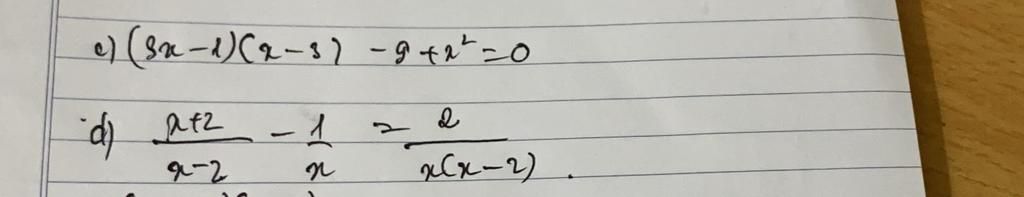 c) (3x-1)(x-3) -9+x²=0
d) x+2/x-2 - 1/x = 2/x(x-2).